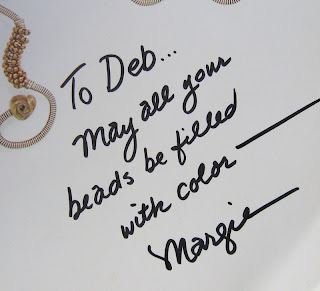 To Deb...
May all your
beads be filled
with color —
Margie